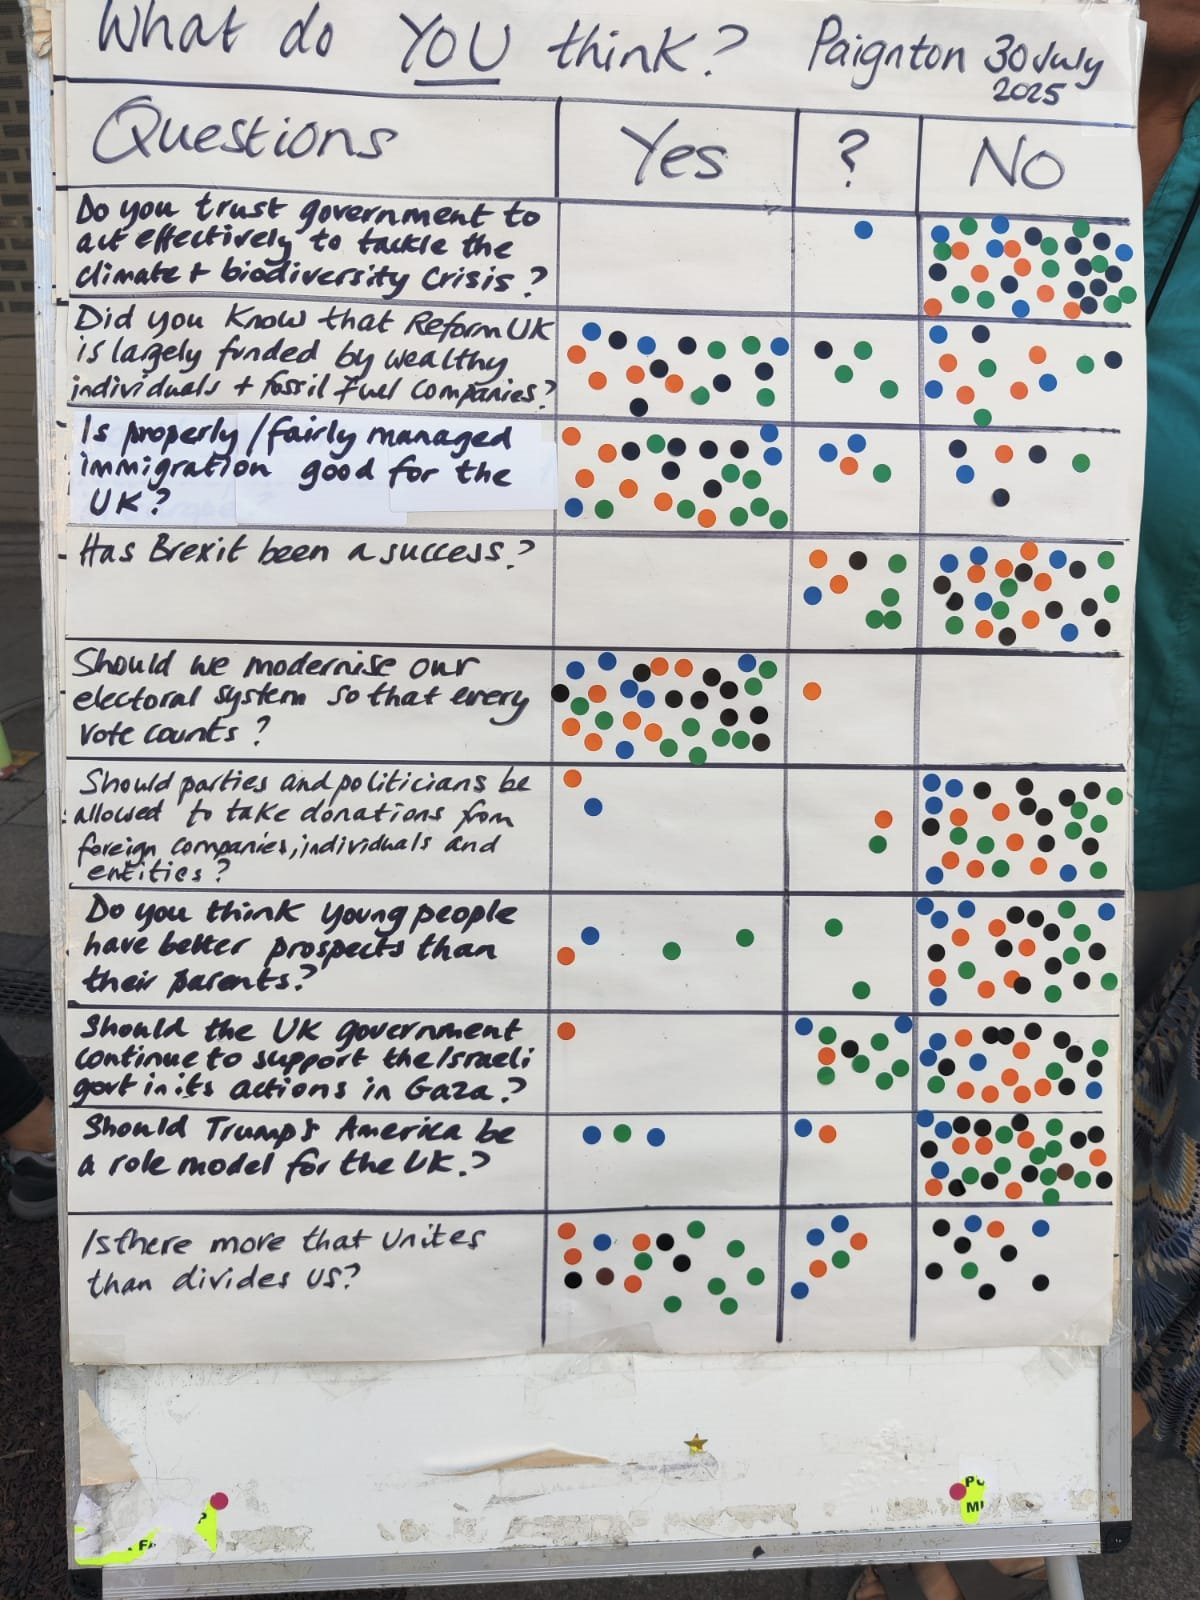 What do YOU think? Paignton 30 July
2025
Questions Yes ? No
Do you trust government to
act effectively to tackle the
climate + biodiversity crisis?
Did you know that Reform UK
is largely funded by wealthy
individuals + fossil fuel companies?
Is properly/fairly managed
immigration good for the
UK?
Has Brexit been a success?
Should we modernise our
electoral system so that every
vote counts?
Should parties and politicians be
allowed to take donations from
foreign companies, individuals and
entities?
Do you think young people
have better prospects than
their parents?
Should the UK government
continue to support the Israeli
govt in its actions in Gaza?
Should Trump's America be
a role model for the UK.?
Is there more that unites
than divides us?